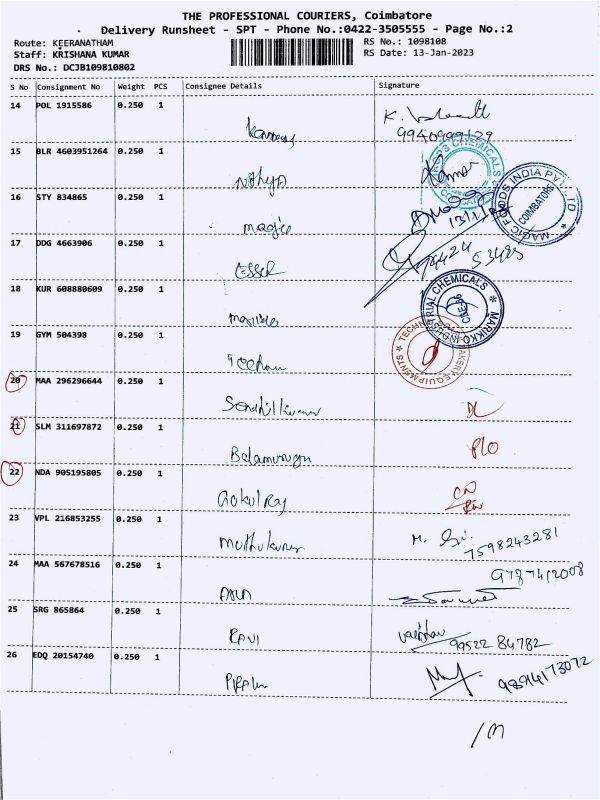 THE PROFESSIONAL COURIERS, Coimbatore
Delivery Runsheet - SPT - Phone No.:0422-3505555 - Page No.:2
Route: KEERANATHAM RS No.: 1098108
Staff: KRISHANA KUMAR RS Date: 13-Jan-2023
DRS No.: DCJB109810802
S No Consignment No Weight PCS Consignee Details Signature
14 POL 1915586 0.250 1
9940999129
15 BLR 4603951264 0.250 1 Nithya
CHEMICALS
16 STY 834865 0.250 1 magic
MAGIC FOODS INDIA PVT. LTD
COIMBATORE
17 DDG 4663906 0.250 1 ESSER
53485
18 KUR 608880609 0.250 1
MARIKKO INDUSTRIAL CHEMICALS
CBE-06
19 GYM 504398 0.250 1
BAKERY EQUIPMENTS
20 MAA 296296644 0.250 1 Sendhilkumar
DL
21 SLM 311697872 0.250 1 Balamurugan
P/O
22 NDA 905195805 0.250 1 Gokul Raj
23 VPL 216853255 0.250 1 muthukumar
7598243281
24 MAA 567678516 0.250 1 ARUN
25 SRG 865864 0.250 1 RAVI
99522 84782
26 EDQ 20154740 0.250 1
9894173072